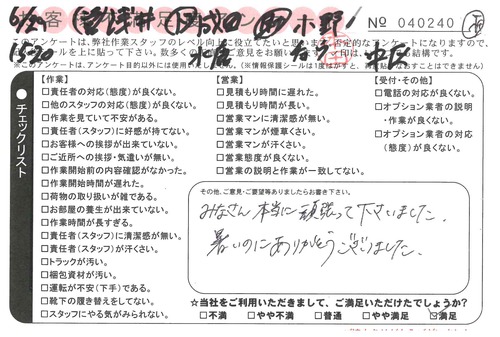 Nº 040240
このアンケートは、弊社作業スタッフのレベル向上に役立てたいと思います。否定的なアンケートになりますので、
【作業】
□責任者の対応(態度)が良くない。
□他のスタッフの対応(態度)が良くない。
□作業を見ていて不安がある。
□責任者(スタッフ)に好感が持てない。
□お客様への挨拶が出来ていない。
□ご近所への挨拶・気遣いが無い。
□作業開始前の内容確認がなかった。
□作業開始時間が遅れた。
□荷物の取り扱いが雑である。
□お部屋の養生が出来ていない。
□作業時間が長すぎる。
□責任者(スタッフ)に清潔感が無い。
□責任者(スタッフ)が汗くさい。
□トラックが汚い。
□梱包資材が汚い。
□運転が不安(下手)である。
□靴下の履き替えをしてない。
□スタッフにやる気がみられない。
チェックリスト
【営業】
□見積もり時間に遅れた。
□見積もり時間が長い。
□営業マンに清潔感が無い。
□営業マンが煙草くさい。
□営業マンが汗くさい。
□営業態度が良くない。
□営業の説明と作業が一致してない。
【受付・その他】
□電話の対応が良くない。
□オプション業者の説明
・作業が良くない。
□オプション業者の対応
(態度)が良くない。
その他、ご意見・ご要望等ありましたらお書き下さい。
みなさん本当に頑張って下さいました。
暑いのにありがとうございました。
☆当社をご利用いただきまして、ご満足いただけたでしょうか?
□不満 □やや不満 □普通 □やや満足 ☑満足